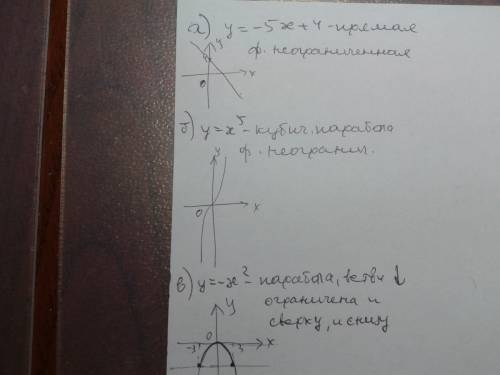 а) y = -5x + 4 - прямая
ф. неограниченная
y
0
x
б) y = x⁵ - кубич. парабола
ф. неогранич.
y
0
x
в) y = -x² - парабола, ветви ↓
ограничена и
сверху, и снизу
y
0
-3
3
x